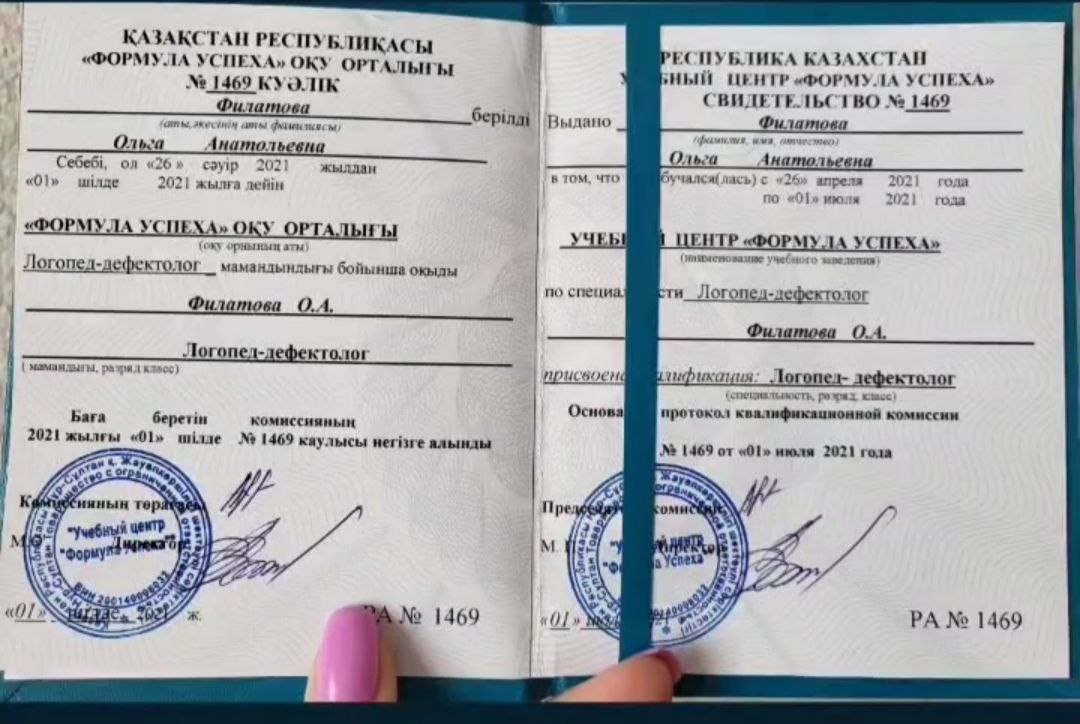 ҚАЗАҚСТАН РЕСПУБЛИКАСЫ
«ФОРМУЛА УСПЕХА» ОҚУ ОРТАЛЫҒЫ
№ 1469 КУӘЛІК
Филатова берілді
(аты,әкесінің аты фамилиясы)
Ольга Анатольевна
Себебі, ол «26 » сәуір 2021 жылдан
«01» шілде 2021 жылға дейін
«ФОРМУЛА УСПЕХА» ОҚУ ОРТАЛЫҒЫ
(оқу орнының аты)
Логопед-дефектолог _ мамандындығы бойынша оқыды
Филатова О.А.
Логопед-дефектолог
( мамандығы, разряд класс)
Баға беретін комиссияның
2021 жылғы «01» шілде № 1469 каулысы негізге алынды
Комиссияның төрағасы
М.О. Директор
"Учебный центр
"Формула Успеха"
БИН 200140008033
«01» шілде 2021 ж.
РА № 1469
РЕСПУБЛИКА КАЗАХСТАН
У БНЫЙ ЦЕНТР «ФОРМУЛА УСПЕХА»
СВИДЕТЕЛЬСТВО № 1469
Выдано Филатова
(фамилия, имя, отчество)
Ольга Анатольевна
в том, что бучался(лась) с «26» апреля 2021 года
по «01» июля 2021 года
УЧЕБН Й ЦЕНТР «ФОРМУЛА УСПЕХА»
(наименование учебного заведения)
по специал сти Логопед-дефектолог
Филатова О.А.
присвоена алификация: Логопед- дефектолог
(специальность, разряд, класс)
Основа протокол квалификационной комиссии
№ 1469 от «01» июля 2021 года
Председат комиссии
М. П. Директор
центр
Успеха"
«01»
РА № 1469